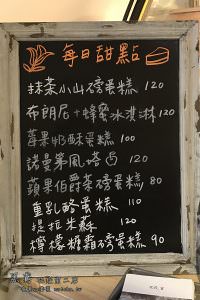 每日甜點
抹茶小山磅蛋糕 120
布朗尼+蜂蜜冰淇淋 120
莓果奶酥蛋糕 100
諾曼第風塔 120
蘋果伯爵茶磅蛋糕 80
重乳酪蛋糕 110
提拉米蘇 120
檸檬糖霜磅蛋糕 90